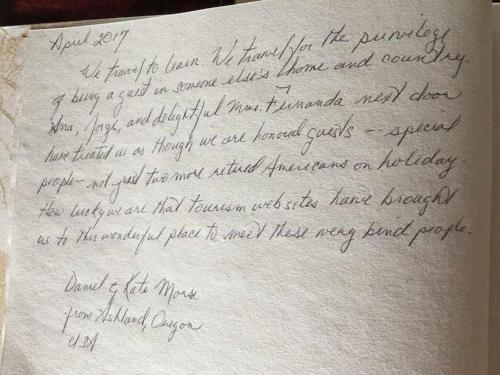 April 2017
We travel to learn. We travel for the privilege
of being a guest in someone else's home and country.
Ana, Jorge, and delightful Mme. Fernanda next door
have treated us as though we are honored guests -- special
people - not just two more retired Americans on holiday.
How lucky we are that tourism websites have brought
us to this wonderful place to meet these very kind people.
Daniel & Kate Morse
from Ashland, Oregon
USA